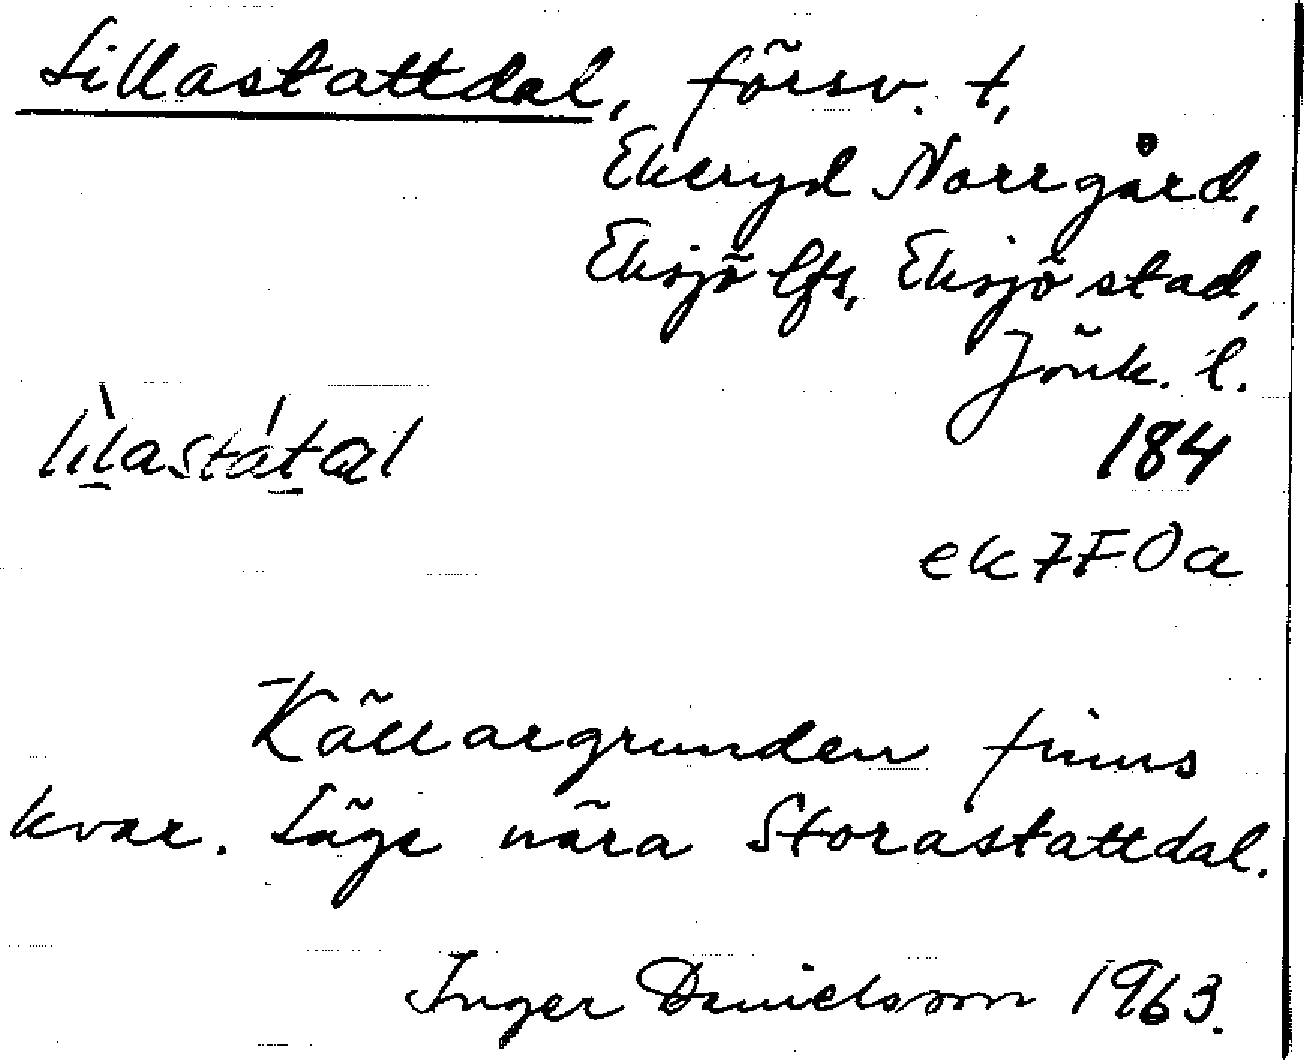 Lillastattdal, försv. t,
Ekeryd Norrgård,
Eksjö lfs, Eksjö stad,
Jönk. l.
184
ek7F0a
Källargrunden finns
kvar. Läge nära Storastattdal.
Inger Danielsson 1963.